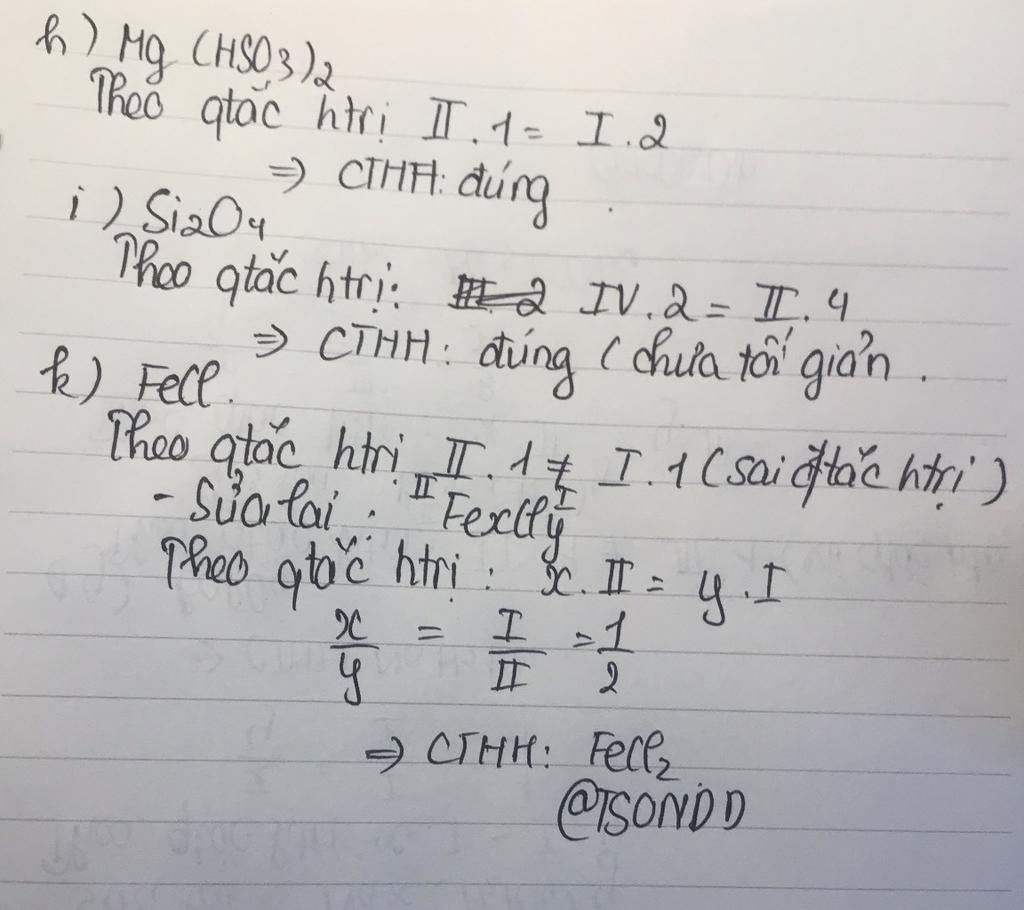 h) Mg (HSO3)2
Theo qtắc htrị II.1 = I.2
=> CTHH: đúng.
i) Si2O4
Theo qtắc htrị: IV.2 = II.4
=> CTHH: đúng (chưa tối giản.
k) FeCl.
Theo qtắc htrị II.1 ≠ I.1 (sai qtắc htrị)
- Sửa lại: FexIIClyI
Theo qtắc htrị: x.II = y.I
x/y = I/II = 1/2
=> CTHH: FeCl2
@TSONDD